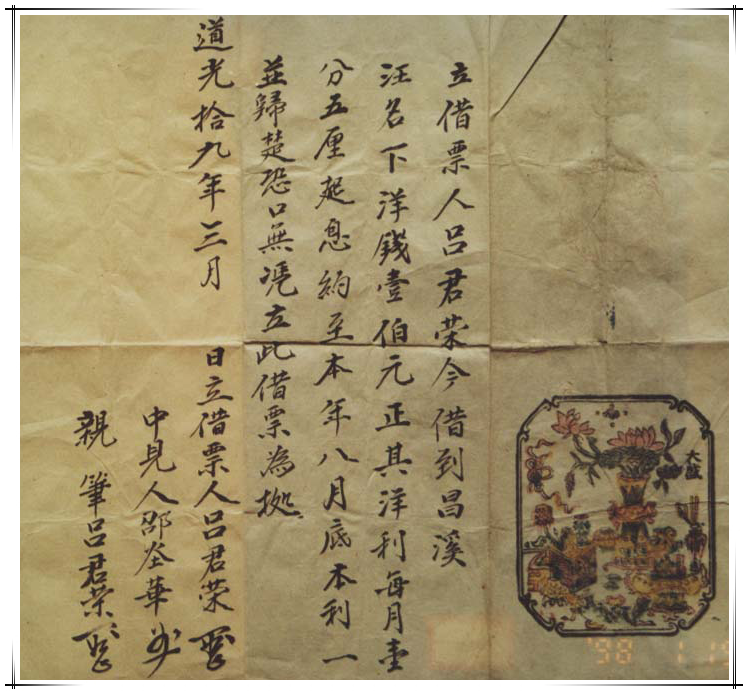 立借票人吕君荣今借到昌溪
汪名下洋錢壹伯元正其洋利每月壹
分五厘起息約至本年八月底本利一
並歸楚恐口無凭立此借票為拠
道光拾九年三月 日立借票人吕君荣
中見人邵華
親筆吕君荣
'98 1 19